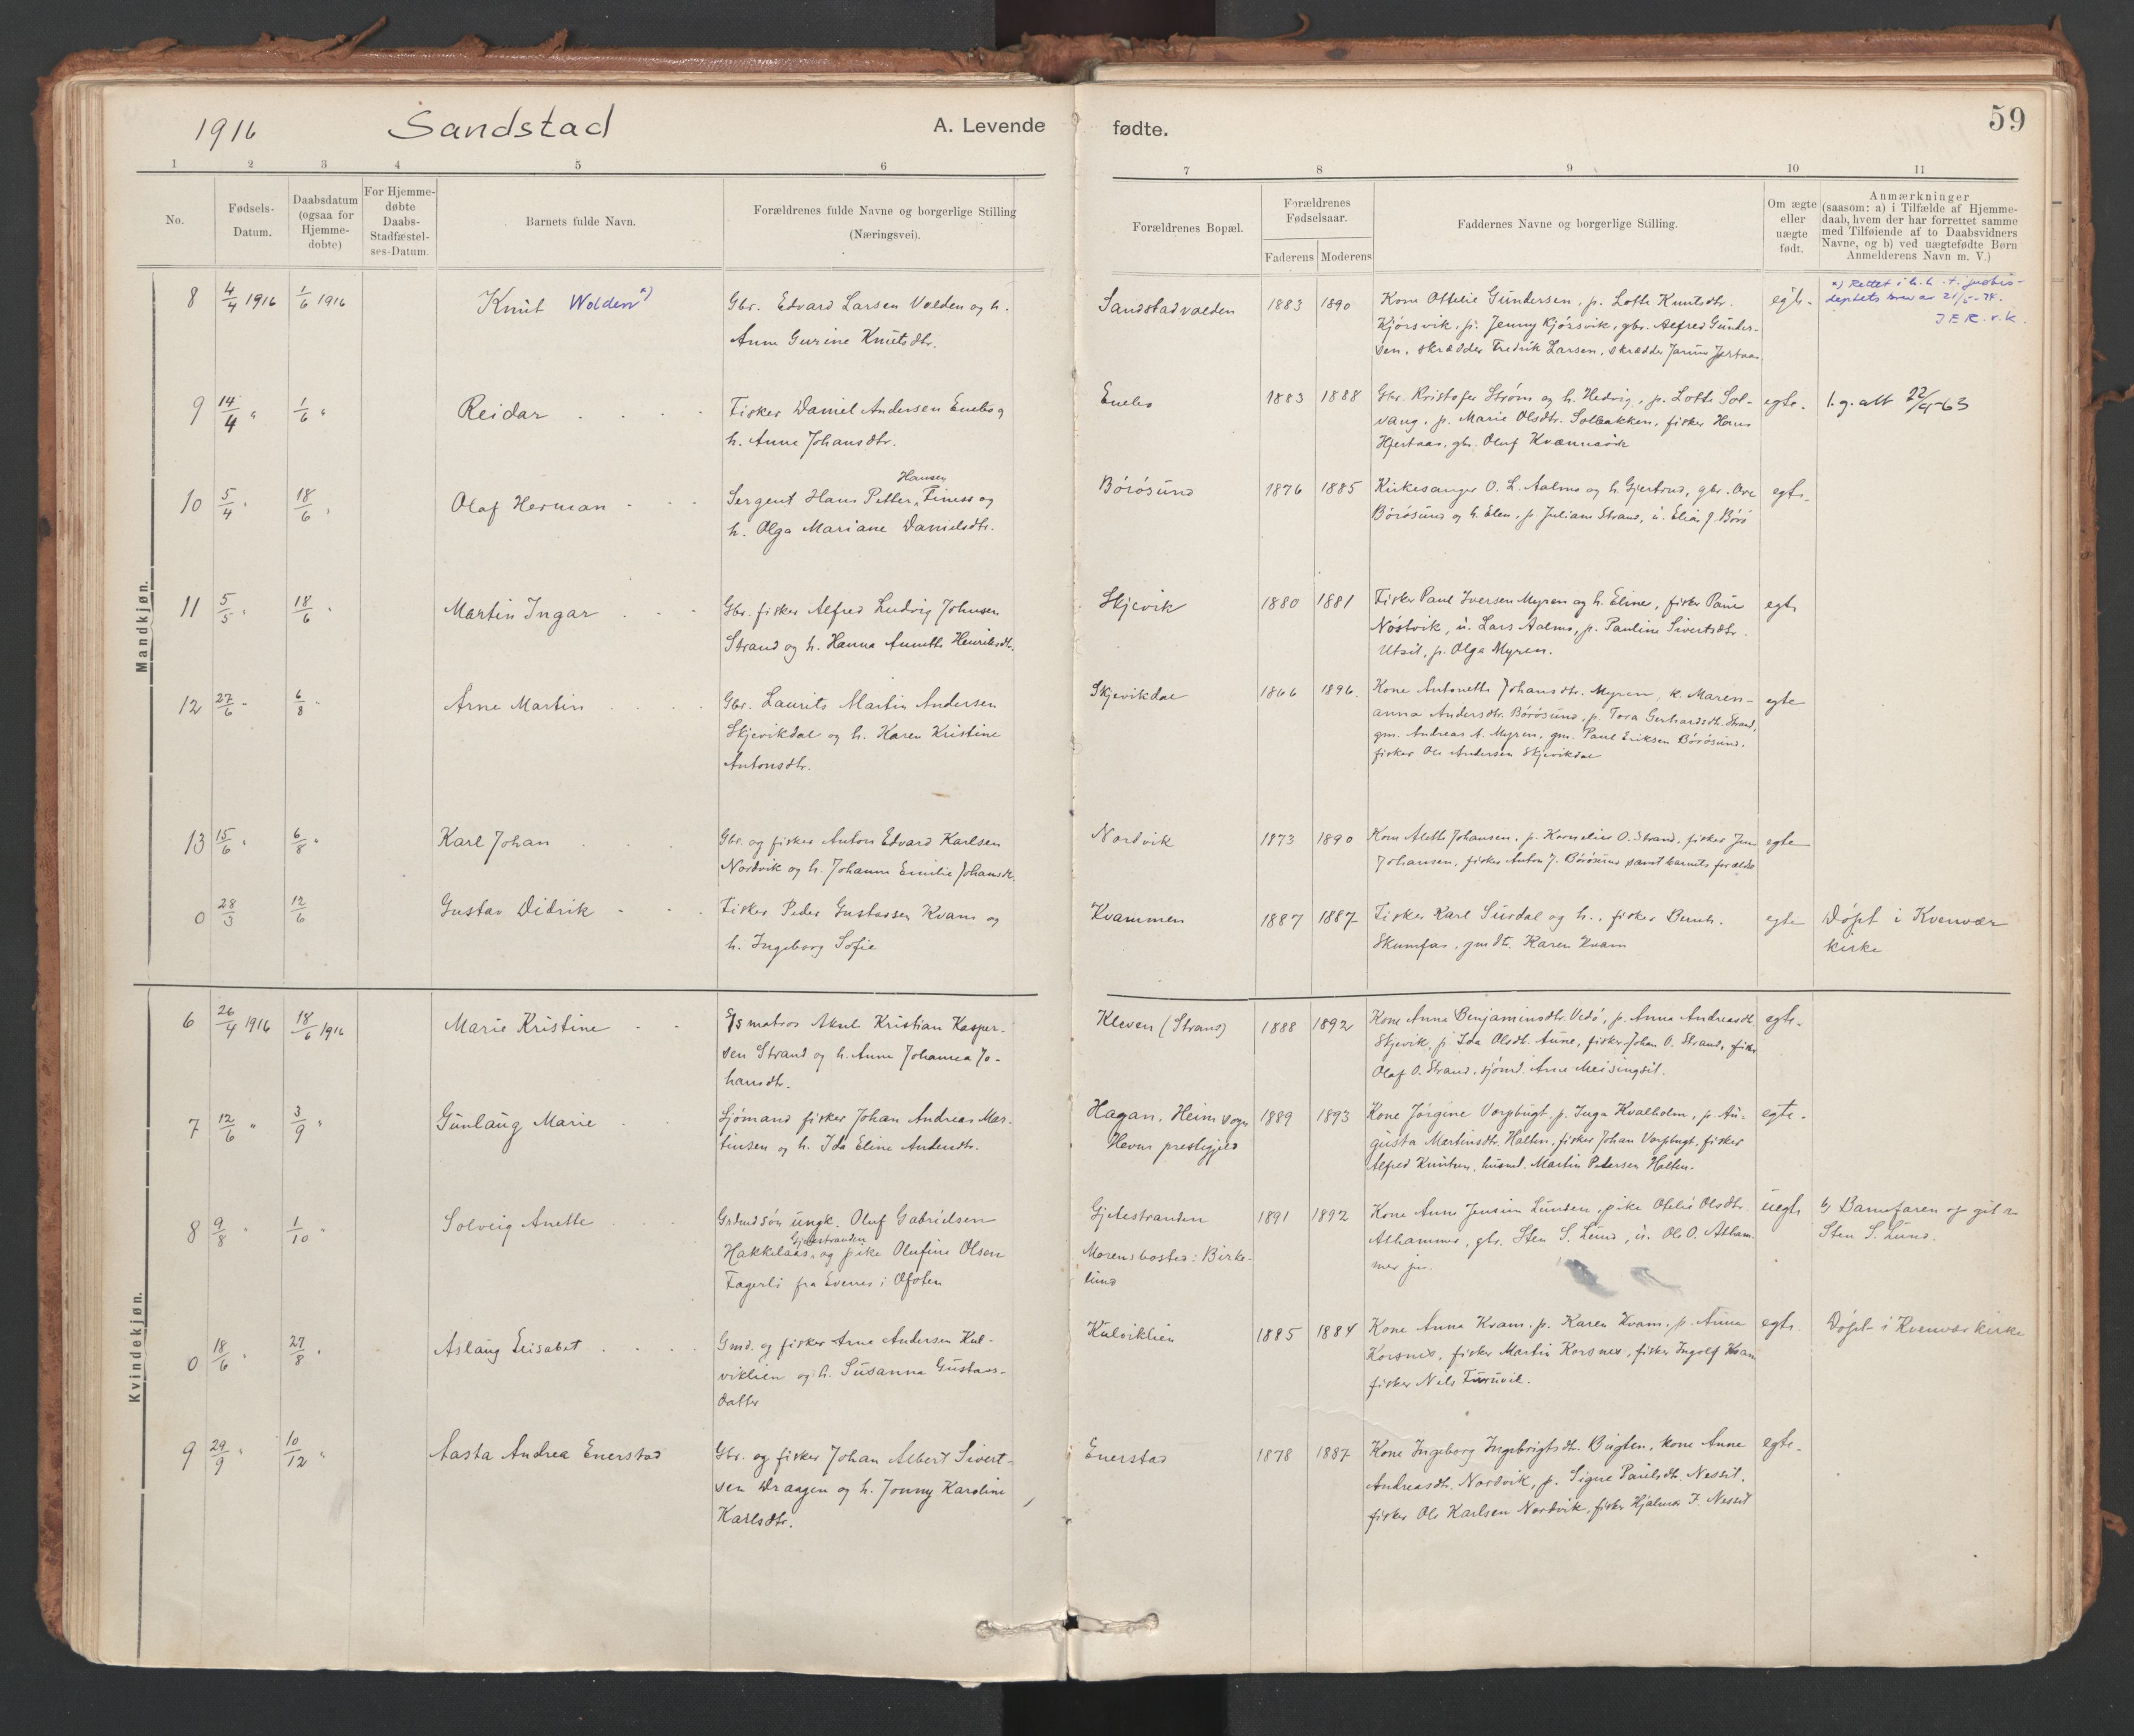 1916 Sandstad A. Levende fødte. 59
1 2 3 4 5 6 7 8 9 10 11
No.
Fødsels-
Datum.
Daabsdatum
(ogsaa for
Hjemme-
døbte)
For Hjemme-
døbte
Daabs-
Stadfæstel-
ses-Datum.
Barnets fulde Navn.
Forældrenes fulde Navne og borgerlige Stilling
(Næringsvei).
Forældrenes Bopæl.
Forældrenes
Fødselsaar.
Faderens Moderens
Faddernes Navne og borgerlige Stilling.
Om ægte
eller
uægte
født.
Anmærkninger
(saasom: a) i Tilfælde af Hjemme-
daab, hvem der har forrettet samme
med Tilføiende af to Daabsvidners
Navne, og b) ved uægtefødte Børn
Anmelderens Navn m. V.)
Mandkjøn.
8 4/4 1916 1/6 1916 Knut Wolden x)
Gbr. Edvard Larsen Volden og h.
Anne Gurine Knutsdtr.
Sandstadvolden 1883 1890
Kone Ottelie Gundersen, p. Lotte Knutsdtr.
Kjørsvik, p. Jenny Kjørsvik, gbr. Alfred Gunder-
sen, skrædder Fredrik Larsen, skrædder
egte.
x) Rettet i h.h. t. justis-
deptets brev av 21/5-74.
9 14/4 " 1/6 " Reidar
Fisker Daniel Andersen Enebo og
h. Anne Johansdtr.
Enebo 1883 1888
Gbr. Kristofer Strøm og h. Hedvig, p. Lotte Sol-
vang, p. Marie Olsdtr. Solbakken, fisker Hans
Hjertaas, gbr. Oluf
egte. l.g. att 22/4-63
10 5/4 " 18/6 " Olaf Herman
Hansen
Sergent Hans Petter Finess og
h. Olga Mariane Danielsdtr.
Børøsund 1876 1885
Kirkesanger O. L. Aalmo og h. Gjertrud, gbr. Ove
Børøsund og h. Elen, p. Juliane Strand, u. Elias J. Børø
egte.
11 5/5 " 18/6 " Martin Ingar
Gbr. fisker Alfred Ludvig Johnsen
Strand og h. Hanna Annette Henriksdtr.
Skjevik 1880 1881
Fisker Paul Iversen Myren og h. Eline, fisker Paul
Nøstvik, u. Lars Aalmo, p. Pauline Sivertsdtr.
Utsit, p. Olga Myren.
egte
12 27/6 " 6/8 " Arne Martin
Gbr. Laurits Martin Andersen
Skjevikdal og h. Karen Kristine
Antonsdtr.
Skjevikdal 1866 1896.
Kone Antonette Johansdtr. Myren, k. Maren-
anna Andersdtr. Børøsund, p. Tora Gerhardsdtr. Strand,
gm. Andreas A. Myren, gm. Paul Eriksen Børøsund,
fisker Ole Andersen Skjevikdal
egte
13 15/6 " 6/8 " Karl Johan
Gbr. og fisker Anton Edvard Karlsen
Nordvik og h. Johanne Emilie Johansdtr.
Nordvik 1873 1890
Kone Alette Johansen, p. Kornelius O. Strand, fisker Jens
Johansen, fisker Anton J. Børøsund samt barnets forældre
egte
0 28/3 12/6 Gustav Didrik
Fisker Peder Gustavsen Kvam og
h. Ingeborg Sofie
Kvammen 1887 1887
Fisker Karl Surdal og h., fisker Bernh.
Skumfas, Karen Kvam
egte Døpt i Kvenvær
kirke
Kvindekjøn.
6 26/4 1916 18/6 1916 Marie Kristine
matros Aksel Kristian Kasper-
sen Strand og h. Anna Johanna Jo-
hansdtr.
Kleven (Strand) 1888 1892
Kone Anna Benjaminsdtr. Vedø, p. Anna Andreasdtr.
Skjevik, p. Ida Olsdtr. Aune, fisker Johan O. Strand, fisker
Olaf O. Strand, sjømd. Arne Meisingsit.
egte.
7 12/6 " 3/9 " Gunlaug Marie
Sjømand fisker Johan Andreas Mar-
tinsen og h. Ida Eline
Hagan, Heim sogn
Hevne prestegjeld 1889 1893
Kone Jørgine Vorpbugt, p. Inga Kvalholm, p. Au-
gusta Martinsdtr. Halten, fisker Johan Vorpbugt, fisker
Alfred Knutsen, husmd. Martin Petersen Halten.
egte.
8 9/8 1/10 " Solveig Anette
Grdmdsøn ungk. Oluf Gabrielsen
Gjetestranden
Hakkelaas, og pike Olufine Olsen
Fagerli fra Evenes i Ofoten
Gjetestranden
Morens bosted: Birke-
lund 1891 1892
Kone Anna Jensine Lunden, pike Otelie Olsdtr.
Alhammer, gbr. Sten S. Lund, u. Ole O. Alham-
mer jr.
uegte b) Barnefaren og gbr.
Sten S. Lund.
0 18/6 " 27/8 " Aslaug Elisabet
Gmd. og fisker Arne Andersen Kul-
viklien og h. Susanna Gustavs-
datter
Kulviklien 1885 1884
Kone Anna Kvam, p. Karen Kvam, p. Anna
Korsnes, fisker Martin Korsnes, fisker Ingolf Kvam
fisker Nils Furuvik.
egte. Døpt i Kvenvær kirke
9 29/9 " 10/12 " Aasta Andrea Enerstad
Gbr. og fisker Johan Albert Sivert-
sen Draagen og h. Jonny Karoline
Karlsdtr.
Enerstad 1878 1887
Kone Ingeborg Ingebrigtsdtr. Bugten, kone Anne
Andreasdtr. Nordvik, p. Signe Paulsdtr. Nessit,
fisker Ole Karlsen Nordvik, fisker Hjalmar F. Nessit
egte.